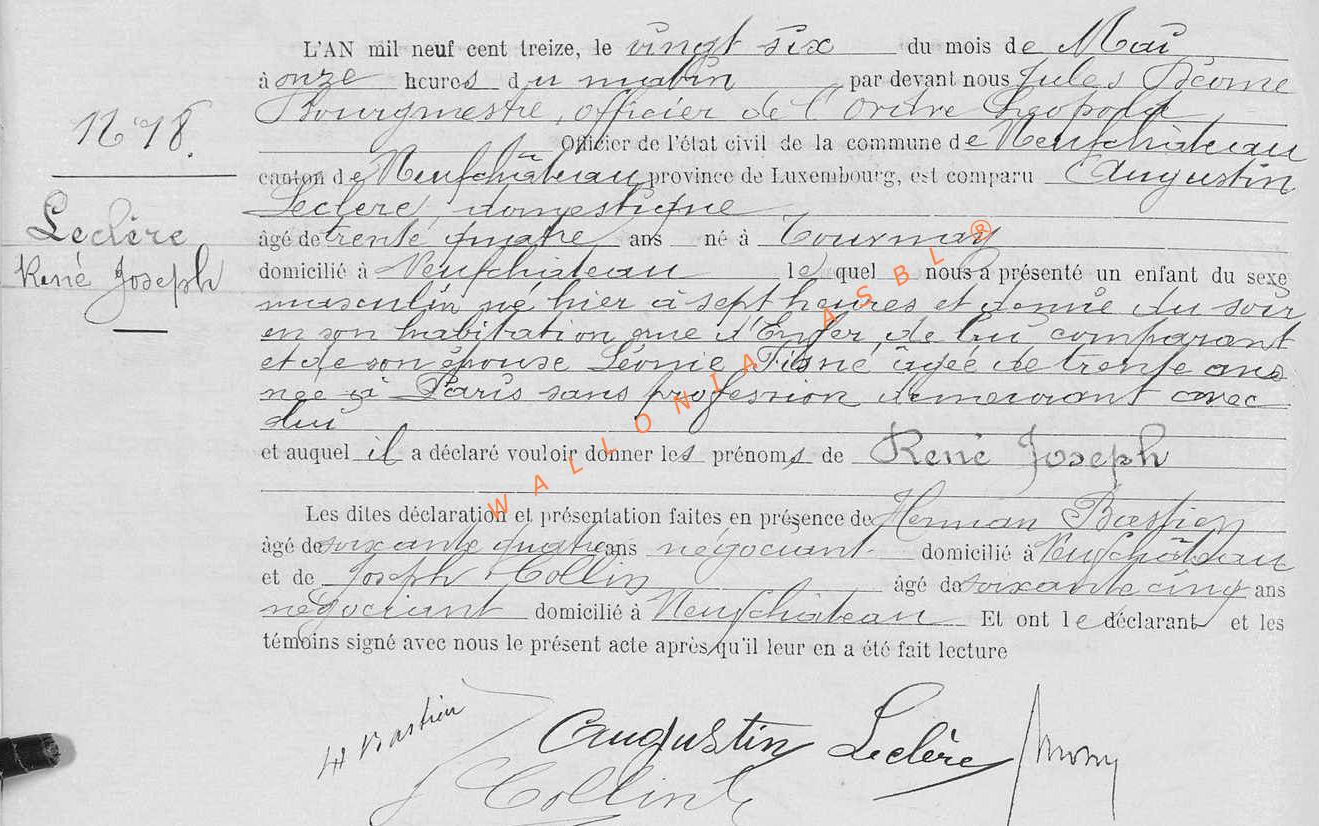 L'AN mil neuf cent treize, le vingt six du mois de Mai
à onze heures du matin par devant nous Jules
Bourgmestre, officier de l'ordre Léopold
N° 18.
Officier de l'état civil de la commune de Neufchâteau
canton de Neufchâteau province de Luxembourg, est comparu Augustin
Leclère, domestique
Leclère
René Joseph
âgé de trente quatre ans né à Tournay
domicilié à Neufchâteau lequel nous a présenté un enfant du sexe
masculin né hier à sept heures et demie du soir
en son habitation rue d'Enfer, de lui comparant
et de son épouse Léonie âgée de trente ans
née à Paris sans profession demeurant avec
lui
et auquel il a déclaré vouloir donner les prénoms de René Joseph
Les dites déclaration et présentation faites en présence de Herman Bastien
âgé de soixante quatre ans négociant domicilié à Neufchâteau
et de Joseph Collin âgé de soixante cinq ans
négociant domicilié à Neufchâteau Et ont le déclarant et les
témoins signé avec nous le présent acte après qu'il leur en a été fait lecture
H Bastien
Augustin Leclère
J Collin
WALLONIA ASBL ®